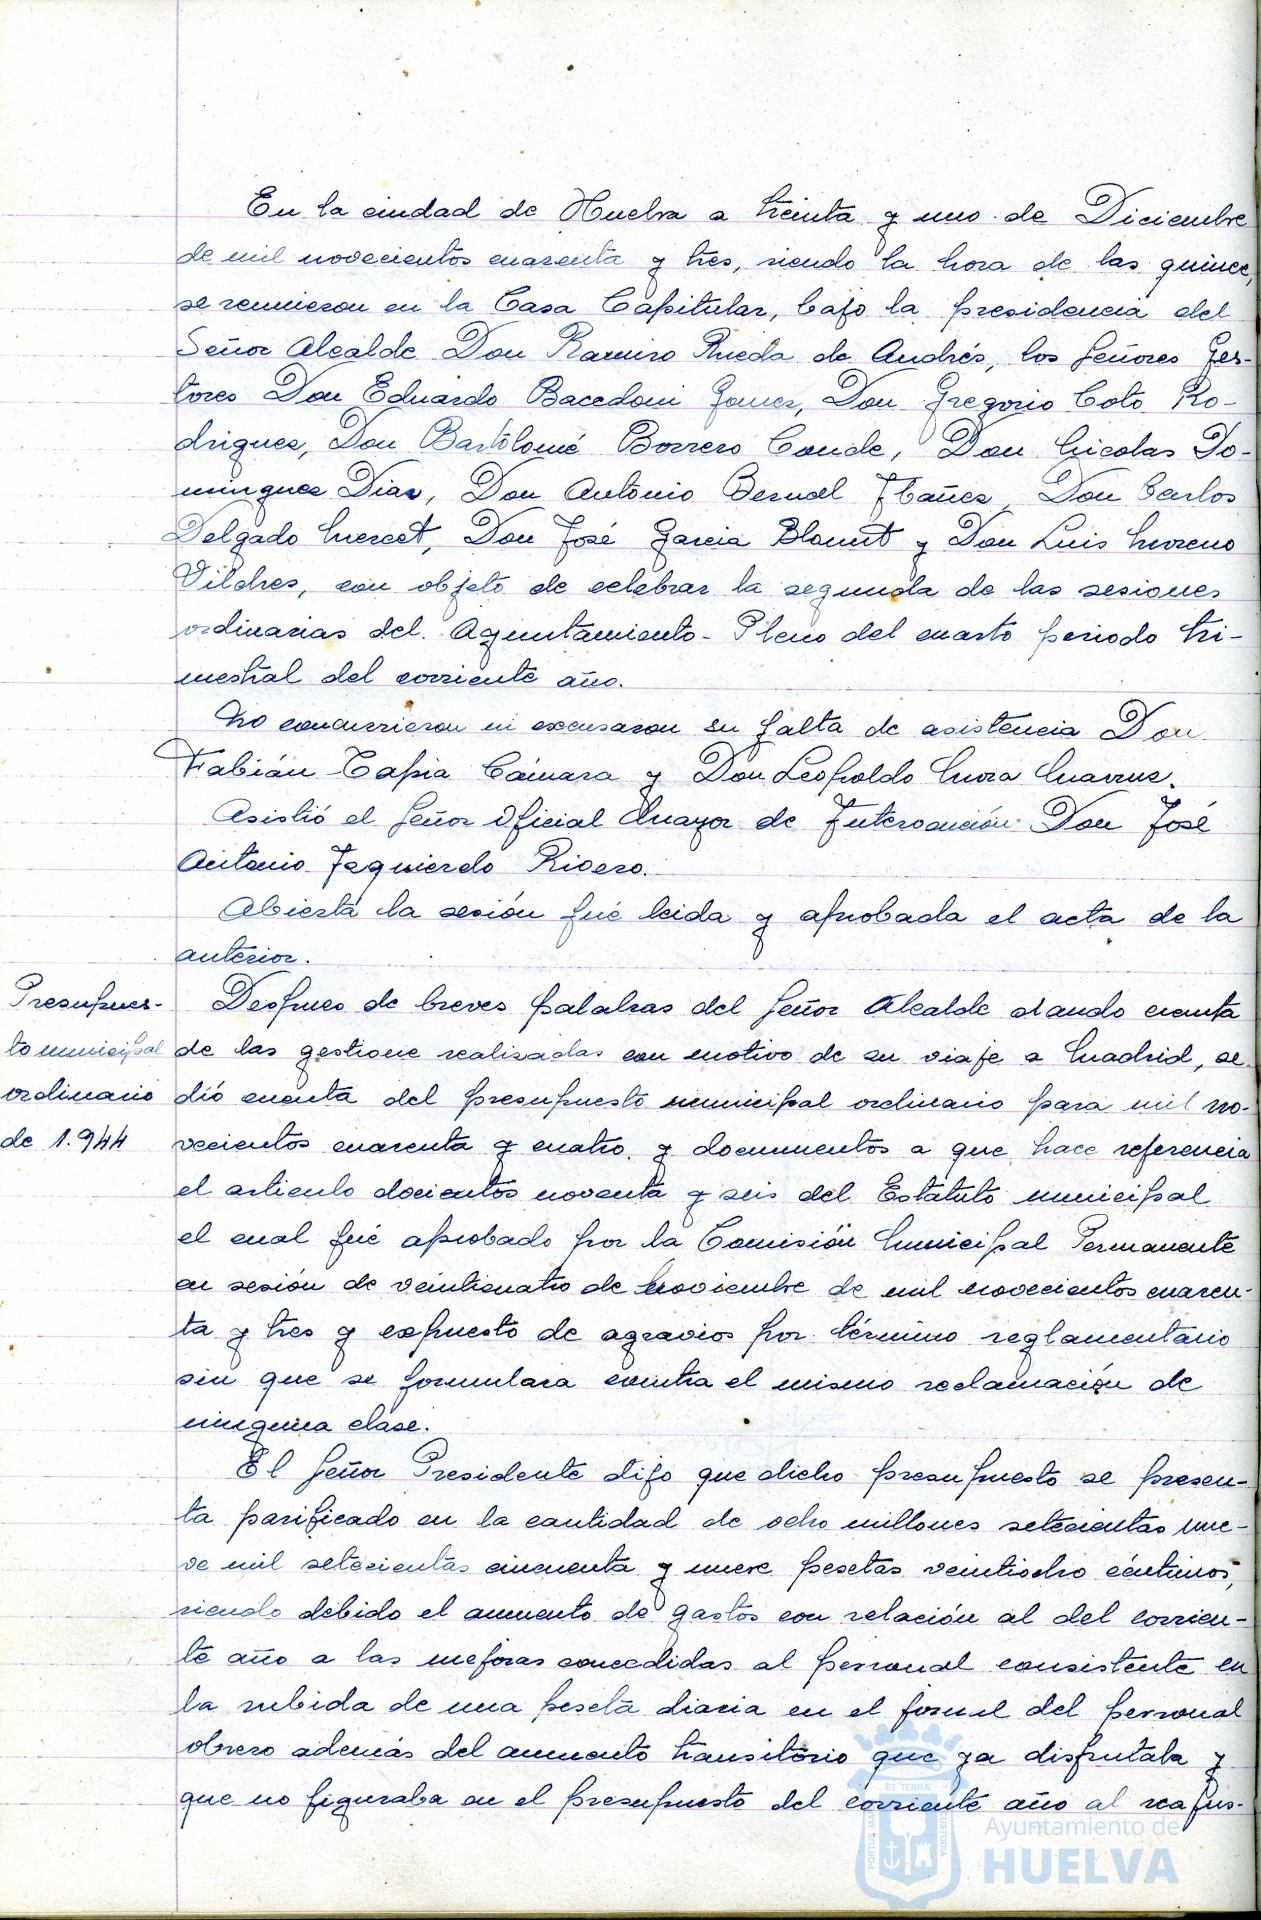 En la ciudad de Huelva a treinta y uno de Diciembre
de mil novecientos cuarenta y tres, siendo la hora de las quince,
se reunieron en la Casa Capitular, bajo la presidencia del
Señor Alcalde Don Ramiro Rueda de Andrés, los Señores Ges-
tores Don Eduardo Bacedoni Gomez, Don Gregorio Coto Ro-
driguez, Don Bartolomé Borrero Conde, Don Nicolas Do-
minguez Diaz, Don Antonio Bernal Ibañez, Don Carlos
Delgado Mercet, Don José Garcia Blount y Don Luis Moreno
Vilches, con objeto de celebrar la segunda de las sesiones
ordinarias del Ayuntamiento-Pleno del cuarto periodo tri-
mestral del corriente año.
No concurrieron ni excusaron su falta de asistencia Don
Fabián Tapia Cámara y Don Leopoldo Mora
Asistió el Señor Oficial Mayor de Intervención Don José
Antonio Izquierdo Rivero.
Abierta la sesión fué leida y aprobada el acta de la
anterior.
Presupues-
to municipal
ordinario
de 1.944
Despues de breves palabras del Señor Alcalde dando cuenta
de las gestione realizadas con motivo de su viaje a Madrid, se
dió cuenta del presupuesto municipal ordinario para mil no-
vecientos cuarenta y cuatro y documentos a que hace referencia
el articulo docientos noventa y seis del Estatuto municipal
el cual fué aprobado por la Comisión Municipal Permanente
en sesión de veinticuatro de Noviembre de mil novecientos cuaren-
ta y tres y expuesto de agravios por término reglamentario
sin que se formulara contra el mismo reclamación de
ninguna clase.
El Señor Presidente dijo que dicho presupuesto se presen-
ta parificado en la cantidad de ocho millones setecientas nue-
ve mil setecientas cincuenta y nueve pesetas veintiocho céntimos,
siendo debido el aumento de gastos con relación al del corrien-
te año a las mejoras concedidas al personal consistente en
la subida de una peseta diaria en el jornal del personal
obrero además del aumento transitorio que ya disfrutaba y
que no figuraba en el presupuesto del corriente año al reajus-
ET TERRA
PORTUS MA
CUSTODIA
Ayuntamiento de
HUELVA